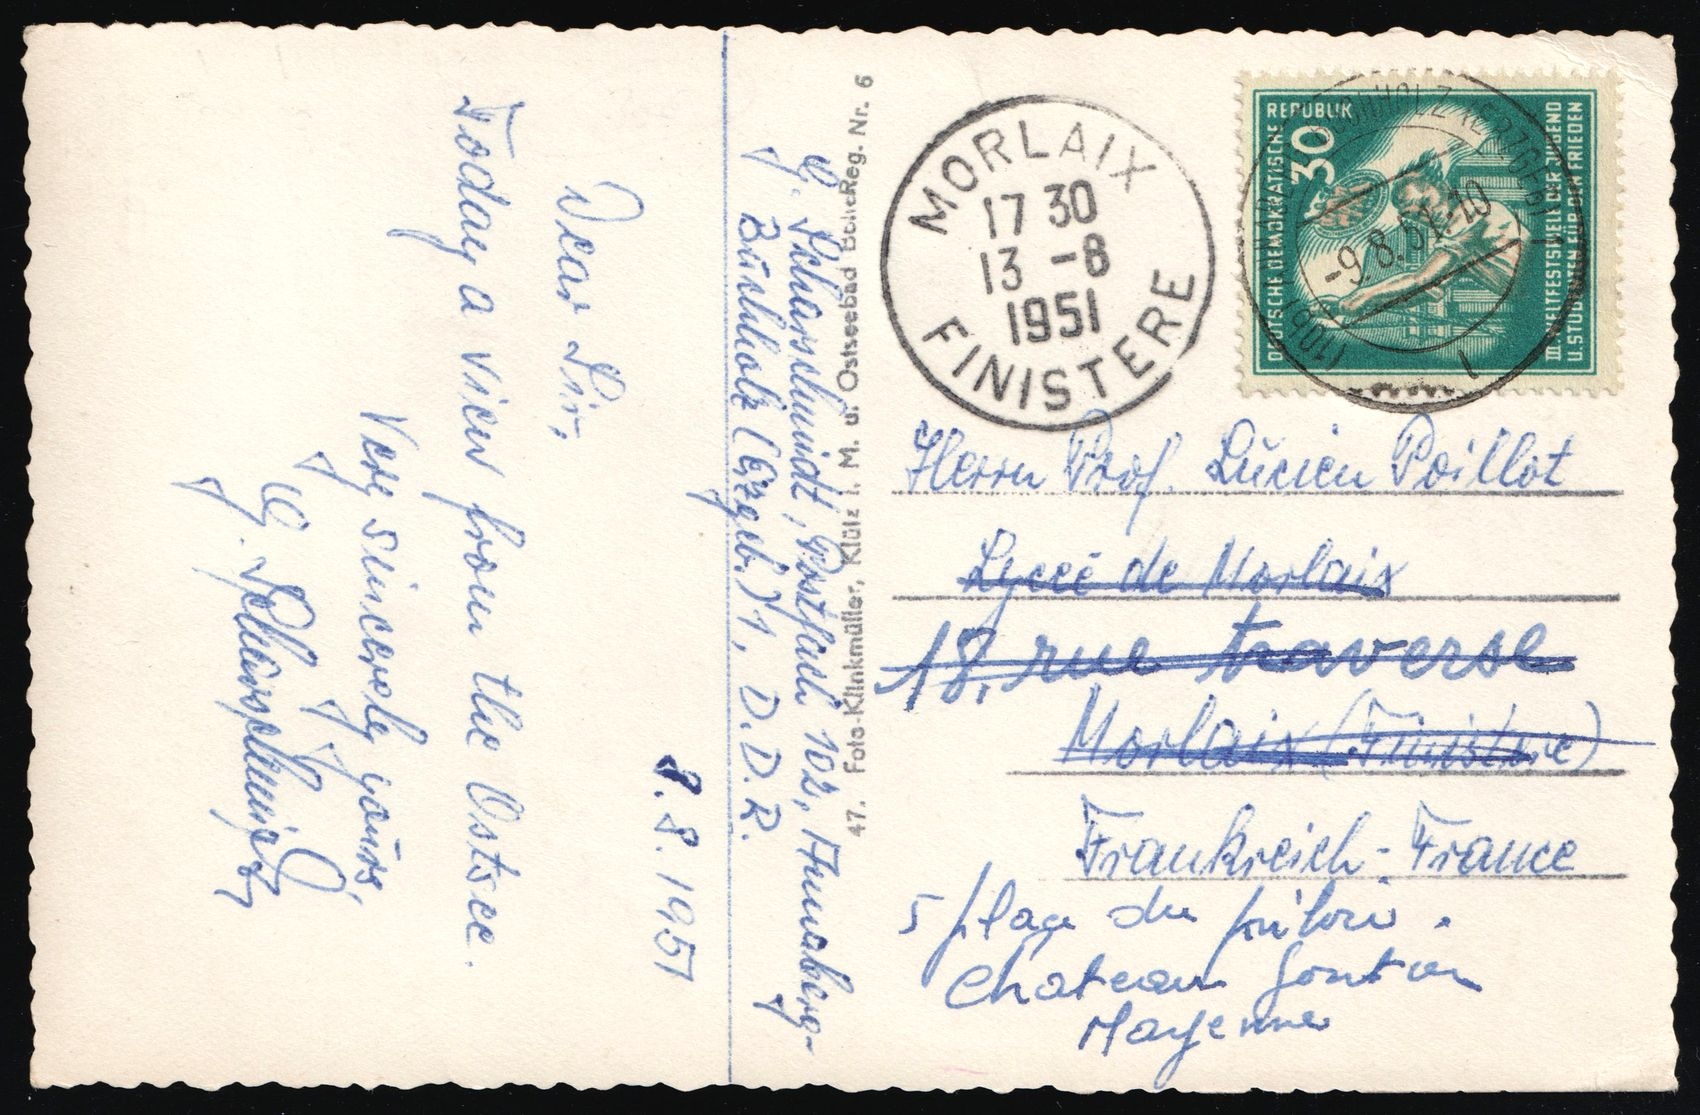 8.8.1951
Dear Sir,
Today a view from the Ostsee.
Very sincerely yours,
G. Scharschmidt
G. Scharschmidt, Postfach 102, Annaberg-
Buchholz (Erzgeb.) 1, D.D.R.
47. Foto-Klinkmüller, Klütz i. M. u. Ostseebad Reg. Nr. 6
MORLAIX
17 30
13 -8
1951
FINISTERE
DEUTSCHE DEMOKRATISCHE REPUBLIK
30
III. WELTFESTSPIELE DER JUGEND
U. STUDENTEN FÜR DEN FRIEDEN
-9.8.51.-10
Herrn Prof. Lucien Poillot
Lycée de Morlaix
18, rue traverse
Morlaix (Finistère)
Frankreich - France
5 place du pilori.
Chateau Gontier
Mayenne